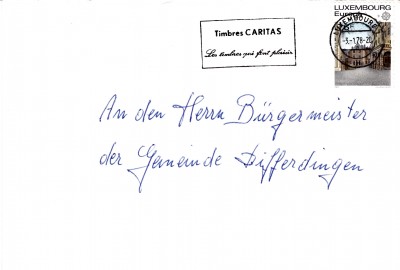 Timbres CARITAS
Les timbres qui font plaisir
LUXEMBOURG
Europa
LUXEMBOURG
-3.-1.78-20
An den Herrn Bürgermeister
der Gemeinde Differdingen